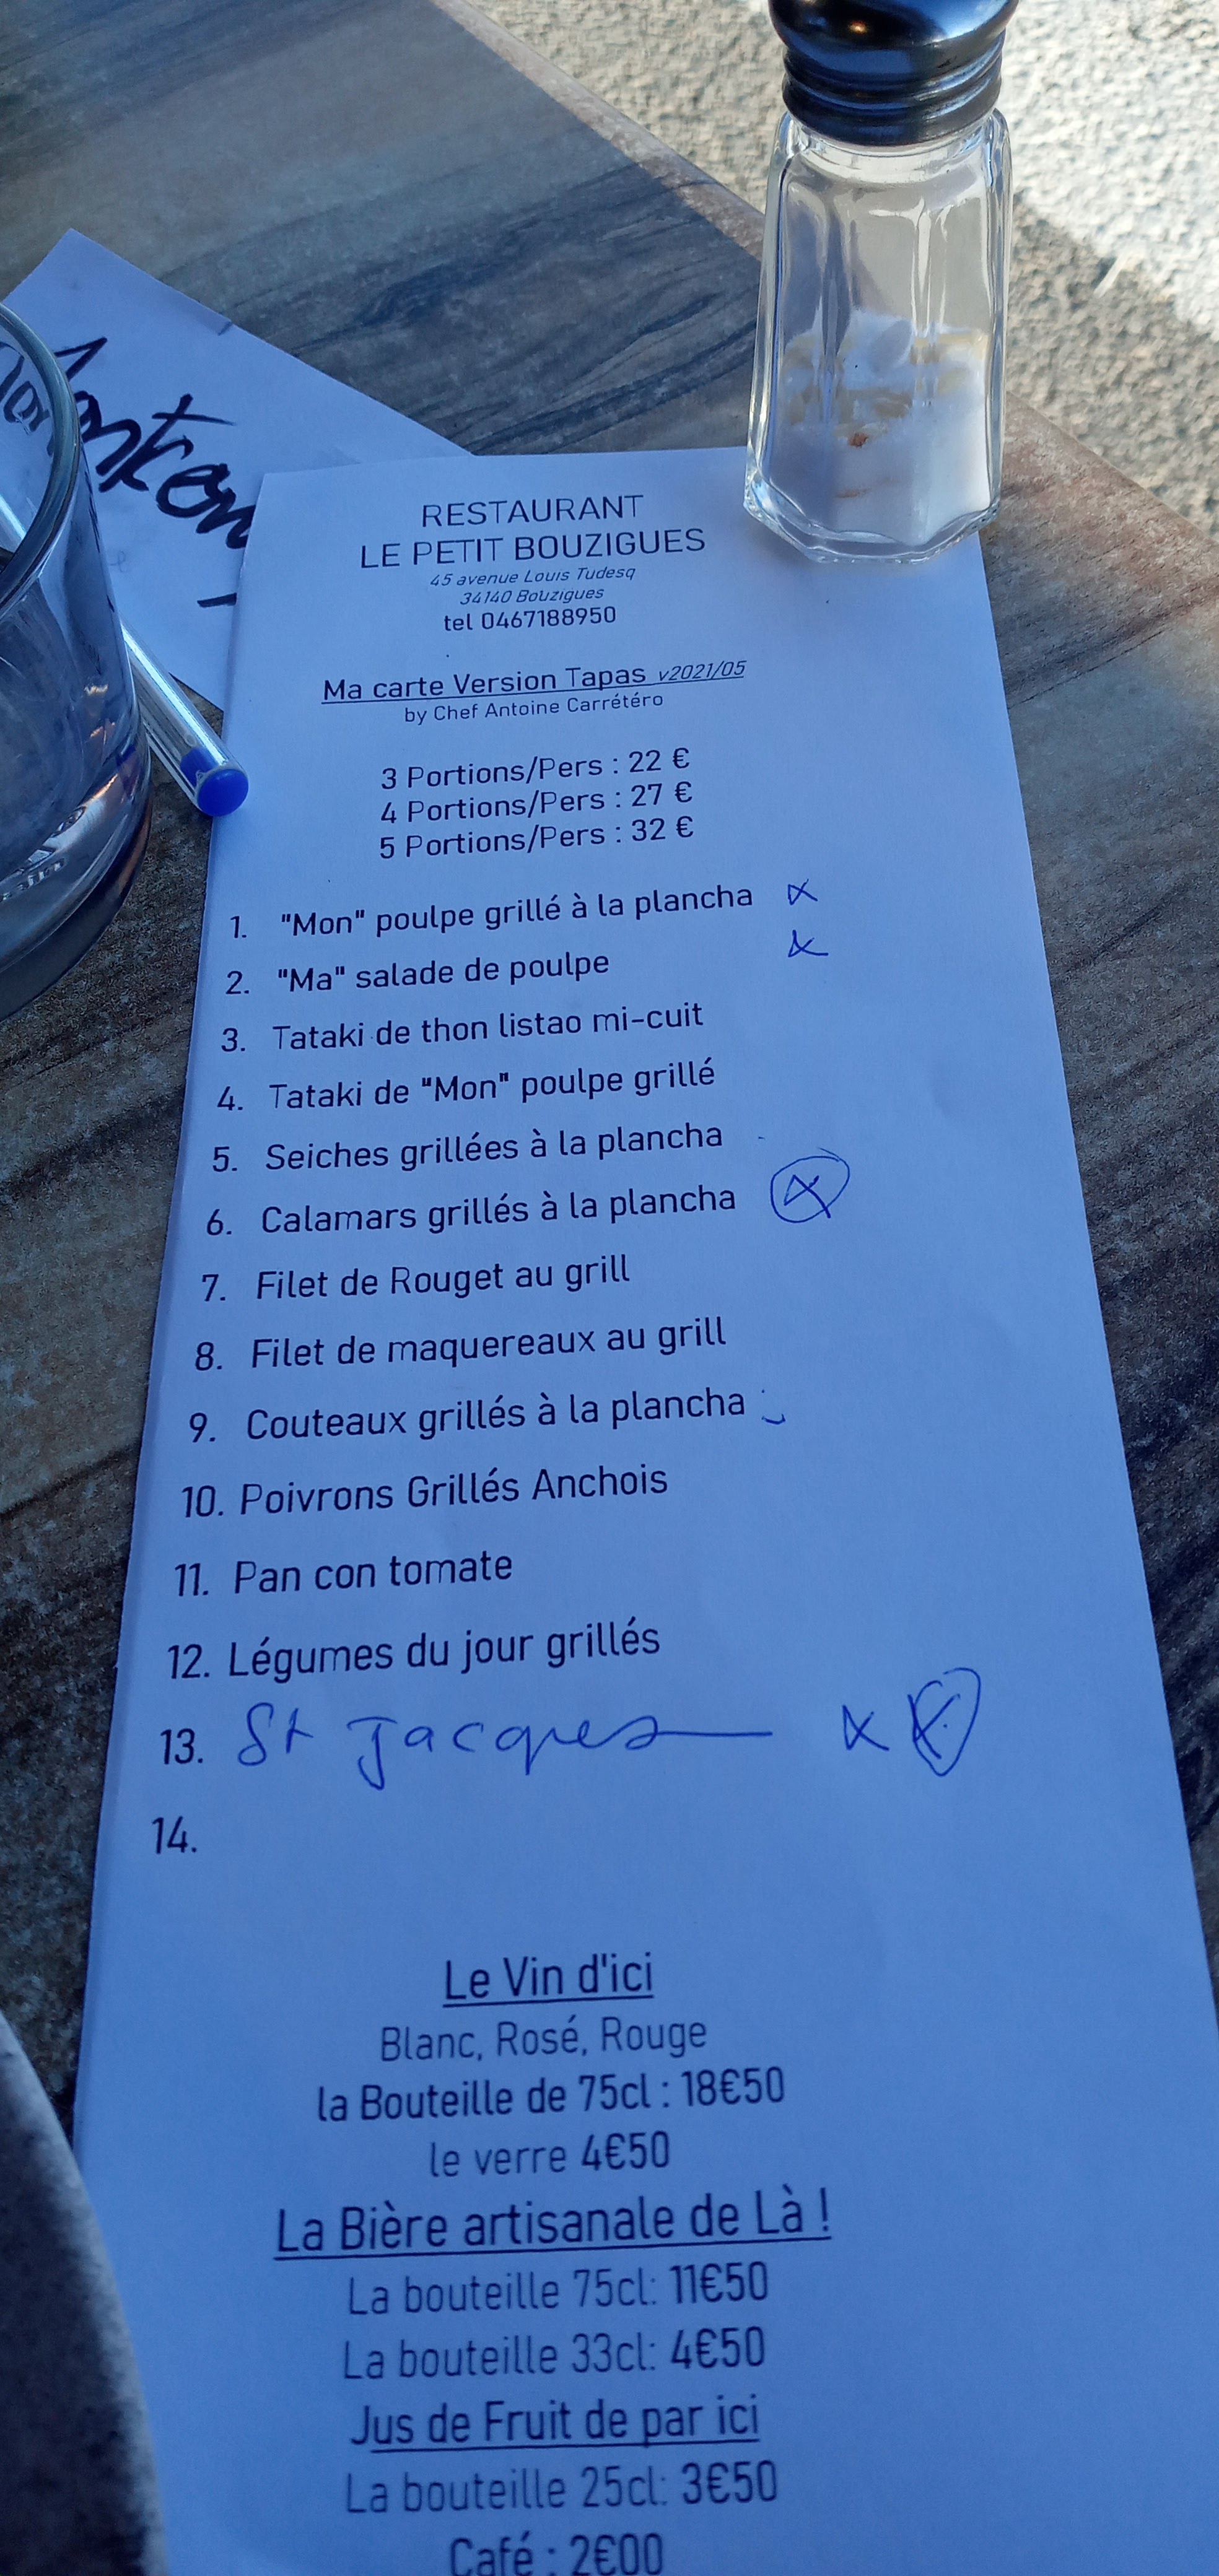 RESTAURANT
LE PETIT BOUZIGUES
45 avenue Louis Tudesq
34140 Bouzigues
tel 0467188950
Ma carte Version Tapas v2021/05
by Chef Antoine Carrétéro
3 Portions/Pers : 22 €
4 Portions/Pers : 27 €
5 Portions/Pers : 32 €
1. "Mon" poulpe grillé à la plancha x
2. "Ma" salade de poulpe x
3. Tataki de thon listao mi-cuit
4. Tataki de "Mon" poulpe grillé
5. Seiches grillées à la plancha
6. Calamars grillés à la plancha x
7. Filet de Rouget au grill
8. Filet de maquereaux au grill
9. Couteaux grillés à la plancha
10. Poivrons Grillés Anchois
11. Pan con tomate
12. Légumes du jour grillés
13. St Jacques x x
14.
Le Vin d'ici
Blanc, Rosé, Rouge
la Bouteille de 75cl : 18€50
le verre 4€50
La Bière artisanale de Là !
La bouteille 75cl: 11€50
La bouteille 33cl: 4€50
Jus de Fruit de par ici
La bouteille 25cl: 3€50
Café : 2€00